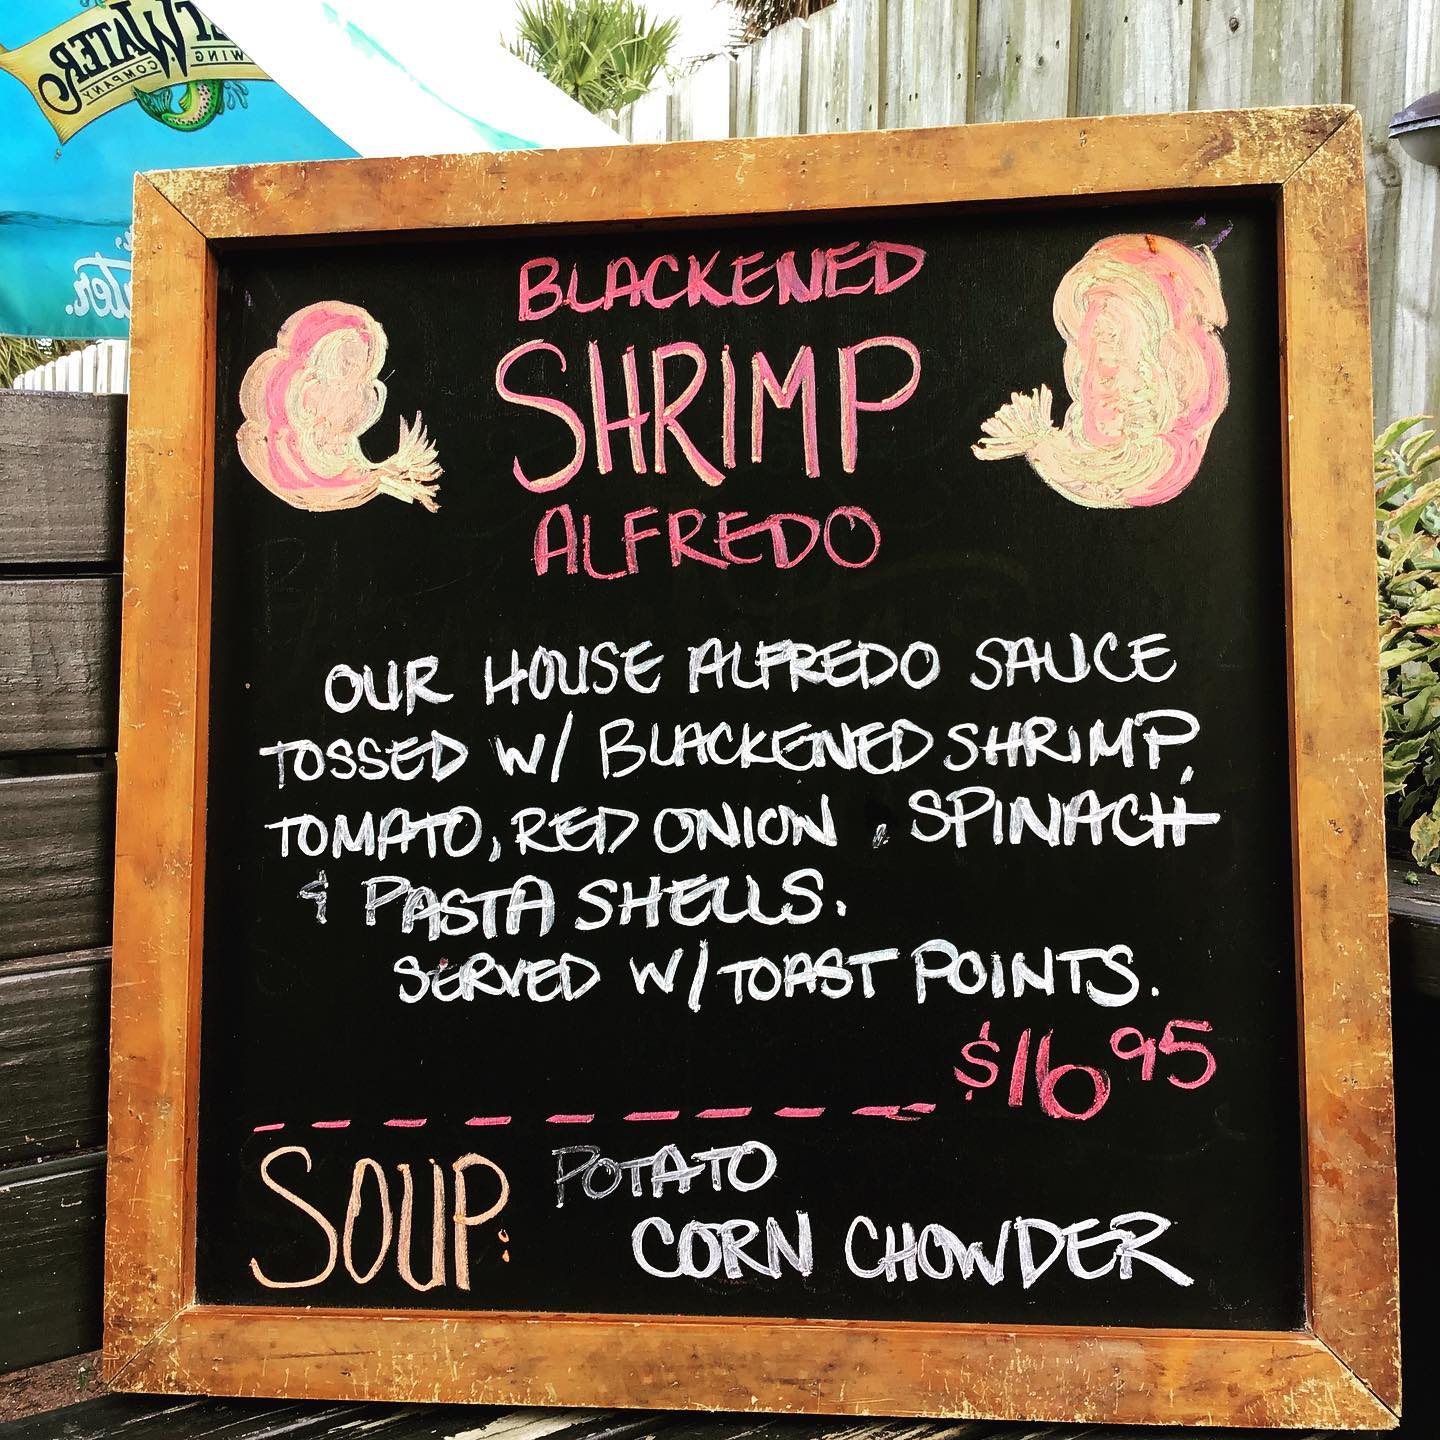 WATER
WING
COMPANY
BLACKENED
SHRIMP
ALFREDO
OUR HOUSE ALFREDO SAUCE
TOSSED W/ BLACKENED SHRIMP,
TOMATO, RED ONION , SPINACH
& PASTA SHELLS.
SERVED W/ TOAST POINTS.
$16 95
SOUP: POTATO
CORN CHOWDER